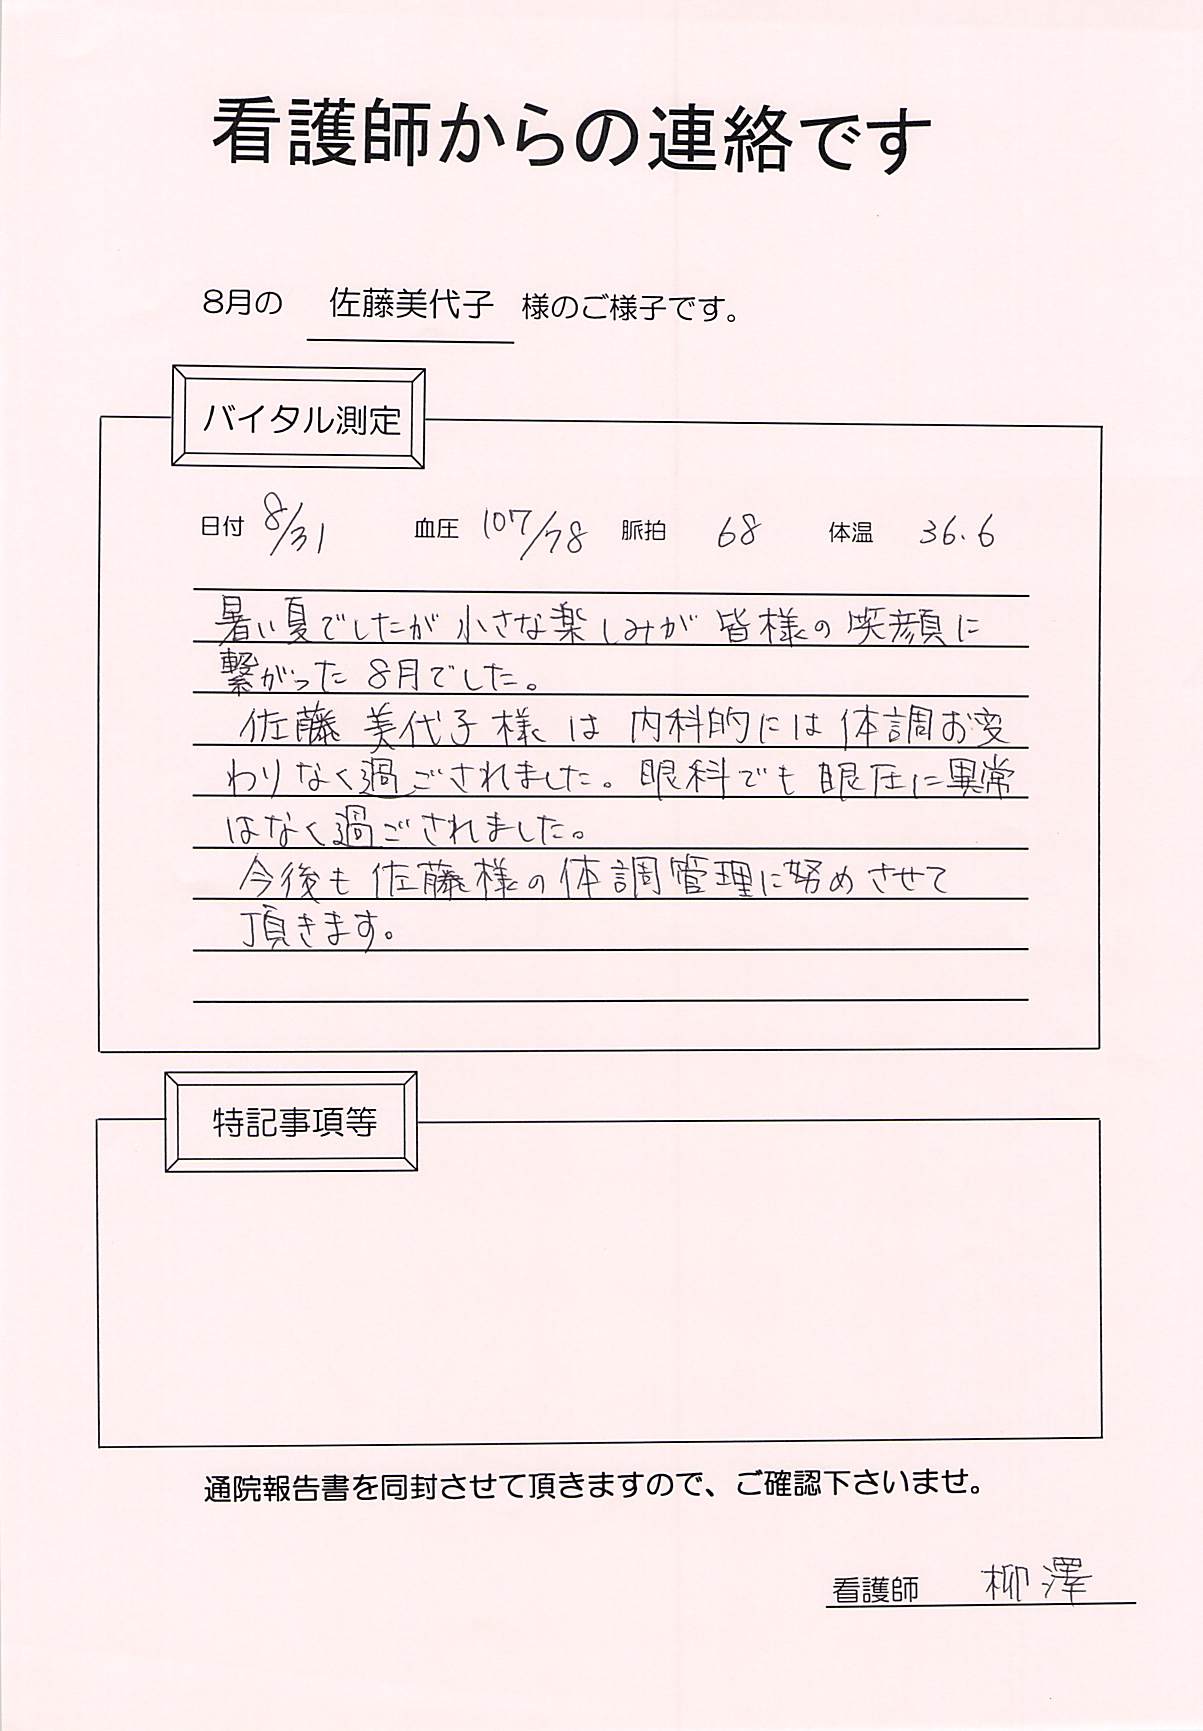 看護師からの連絡です
8月の 佐藤美代子 様のご様子です。
バイタル測定
日付 8/31 血圧 107/78 脈拍 68 体温 36.6
暑い夏でしたが小さな楽しみが皆様の笑顔に
繋がった8月でした。
佐藤美代子様は内科的には体調お変
わりなく過ごされました。眼科でも眼圧に異常
はなく過ごされました。
今後も佐藤様の体調管理に努めさせて
頂きます。
特記事項等
通院報告書を同封させて頂きますので、ご確認下さいませ。
看護師 柳澤